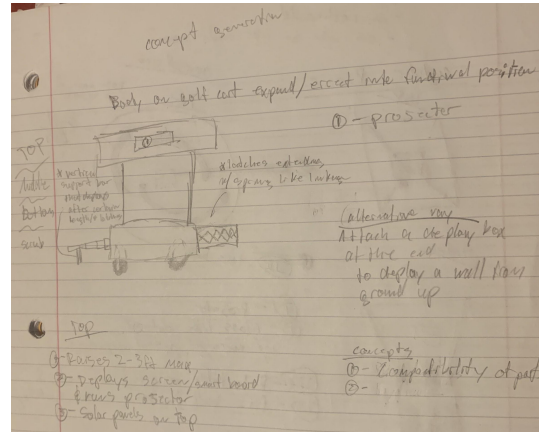 concept generation
Body on golf cart expand/erect into functional position
① - prosecter
TOP
Middle
Bottom
* vertical
support bar
that deploys
after certain
* latches extending
w/ springs, like linkage
(alternative way
Attach a deploy box
at the end
to deploy a wall from
ground up
TOP
①- Raises 2-3ft max
②- Deploys screen/smart board
& runs projector
③- Solar panels on top
concepts
①- Compatibility of part
②-